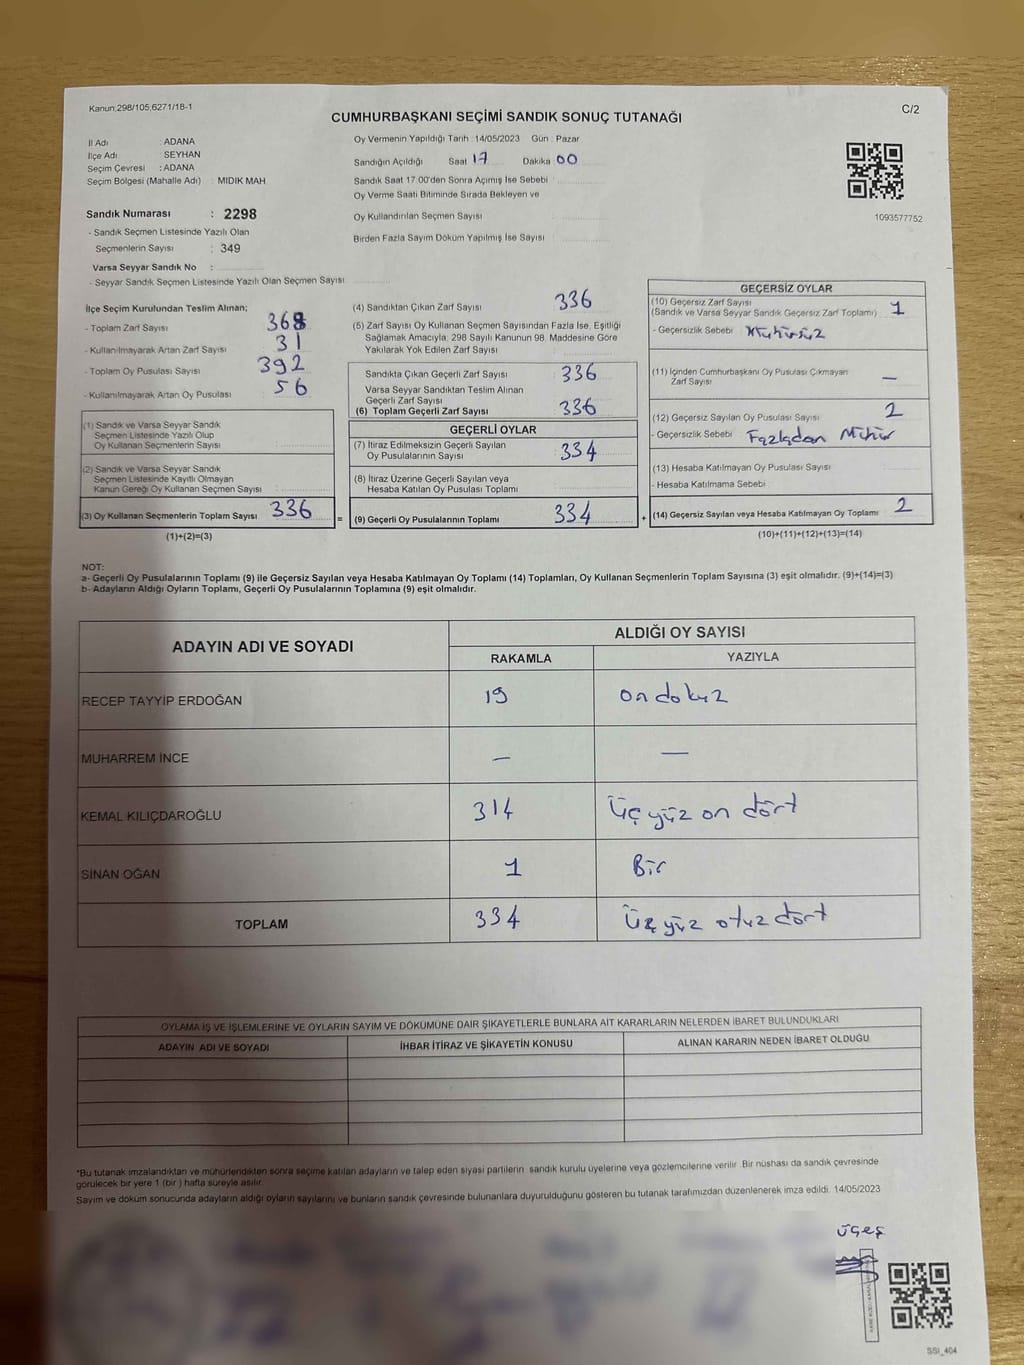 Kanun:298/105,6271/18-1
C/2
CUMHURBAŞKANI SEÇİMİ SANDIK SONUÇ TUTANAĞI
İl Adı : ADANA
İlçe Adı : SEYHAN
Seçim Çevresi : ADANA
Seçim Bölgesi (Mahalle Adı) : MIDIK MAH
Sandık Numarası : 2298
- Sandık Seçmen Listesinde Yazılı Olan
Seçmenlerin Sayısı : 349
Varsa Seyyar Sandık No :
- Seyyar Sandık Seçmen Listesinde Yazılı Olan Seçmen Sayısı
Oy Vermenin Yapıldığı Tarih : 14/05/2023 Gün : Pazar
Sandığın Açıldığı Saat 17 Dakika 00
Sandık Saat 17:00'den Sonra Açımış İse Sebebi
Oy Verme Saati Bitiminde Sırada Bekleyen ve
Oy Kullandırılan Seçmen Sayısı
Birden Fazla Sayım Döküm Yapılmış İse Sayısı
1093577752
İlçe Seçim Kurulundan Teslim Alınan;
- Toplam Zarf Sayısı 368
- Kullanılmayarak Artan Zarf Sayısı 31
- Toplam Oy Pusulası Sayısı 392
- Kullanılmayarak Artan Oy Pusulası 56
(1) Sandık ve Varsa Seyyar Sandık
Seçmen Listesinde Yazılı Olup
Oy Kullanan Seçmenlerin Sayısı
(2) Sandık ve Varsa Seyyar Sandık
Seçmen Listesinde Kayıtlı Olmayan
Kanun Gereği Oy Kullanan Seçmen Sayısı
(3) Oy Kullanan Seçmenlerin Toplam Sayısı 336
=
(1)+(2)=(3)
(4) Sandıktan Çıkan Zarf Sayısı 336
(5) Zarf Sayısı Oy Kullanan Seçmen Sayısından Fazla İse, Eşitliği
Sağlamak Amacıyla; 298 Sayılı Kanunun 98. Maddesine Göre
Yakılarak Yok Edilen Zarf Sayısı
Sandıkta Çıkan Geçerli Zarf Sayısı 336
Varsa Seyyar Sandıktan Teslim Alınan
Geçerli Zarf Sayısı
(6) Toplam Geçerli Zarf Sayısı 336
GEÇERLİ OYLAR
(7) İtiraz Edilmeksizin Geçerli Sayılan
Oy Pusulalarının Sayısı 334
(8) İtiraz Üzerine Geçerli Sayılan veya
Hesaba Katılan Oy Pusulası Toplamı
(9) Geçerli Oy Pusulalarının Toplamı 334
+
GEÇERSİZ OYLAR
(10) Geçersiz Zarf Sayısı 1
(Sandık ve Varsa Seyyar Sandık Geçersiz Zarf Toplamı)
- Geçersizlik Sebebi Mühürsüz
(11) İçinden Cumhurbaşkanı Oy Pusulası Çıkmayan
Zarf Sayısı —
(12) Geçersiz Sayılan Oy Pusulası Sayısı 2
- Geçersizlik Sebebi Fazladan Mühür
(13) Hesaba Katılmayan Oy Pusulası Sayısı
- Hesaba Katılmama Sebebi
(14) Geçersiz Sayılan veya Hesaba Katılmayan Oy Toplamı 2
(10)+(11)+(12)+(13)=(14)
NOT:
a- Geçerli Oy Pusulalarının Toplamı (9) ile Geçersiz Sayılan veya Hesaba Katılmayan Oy Toplamı (14) Toplamları, Oy Kullanan Seçmenlerin Toplam Sayısına (3) eşit olmalıdır. (9)+(14)=(3)
b- Adayların Aldığı Oyların Toplamı, Geçerli Oy Pusulalarının Toplamına (9) eşit olmalıdır.
ADAYIN ADI VE SOYADI
ALDIĞI OY SAYISI
RAKAMLA YAZIYLA
RECEP TAYYİP ERDOĞAN 19 on dokuz
MUHARREM İNCE — —
KEMAL KILIÇDAROĞLU 314 üç yüz on dört
SİNAN OĞAN 1 Bir
TOPLAM 334 üç yüz otuz dört
OYLAMA İŞ VE İŞLEMLERİNE VE OYLARIN SAYIM VE DÖKÜMÜNE DAİR ŞİKAYETLERLE BUNLARA AİT KARARLARIN NELERDEN İBARET BULUNDUKLARI
ADAYIN ADI VE SOYADI İHBAR İTİRAZ VE ŞİKAYETİN KONUSU ALINAN KARARIN NEDEN İBARET OLDUĞU
*Bu tutanak imzalandıktan ve mühürlendikten sonra seçime katılan adayların ve talep eden siyasi partilerin sandık kurulu üyelerine veya gözlemcilerine verilir. Bir nüshası da sandık çevresinde
görülecek bir yere 1 (bir ) hafta süreyle asılır.
Sayım ve döküm sonucunda adayların aldığı oyların sayılarını ve bunların sandık çevresinde bulunanlara duyurulduğunu gösteren bu tutanak tarafımızdan düzenlenerek imza edildi. 14/05/2023
SSI_404